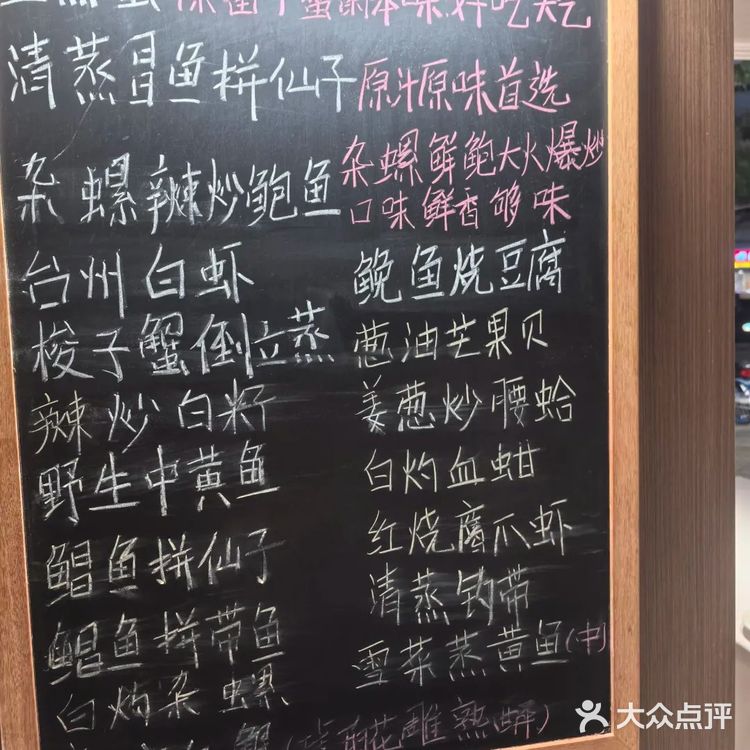 清蒸冒鱼拼仙子 原汁原味首选
杂螺辣炒鲍鱼 杂螺鲜鲍大火爆炒
口味鲜香够味
台州白虾 鮸鱼烧豆腐
梭子蟹倒立蒸 葱油芒果贝
辣炒白籽 姜葱炒腰蛤
野生中黄鱼 白灼血蚶
鲳鱼拼仙子 红烧富爪虾
鲳鱼拼带鱼 清蒸钓带
白灼杂螺 雪菜蒸黄鱼(中)
花雕熟醉)
大众点评